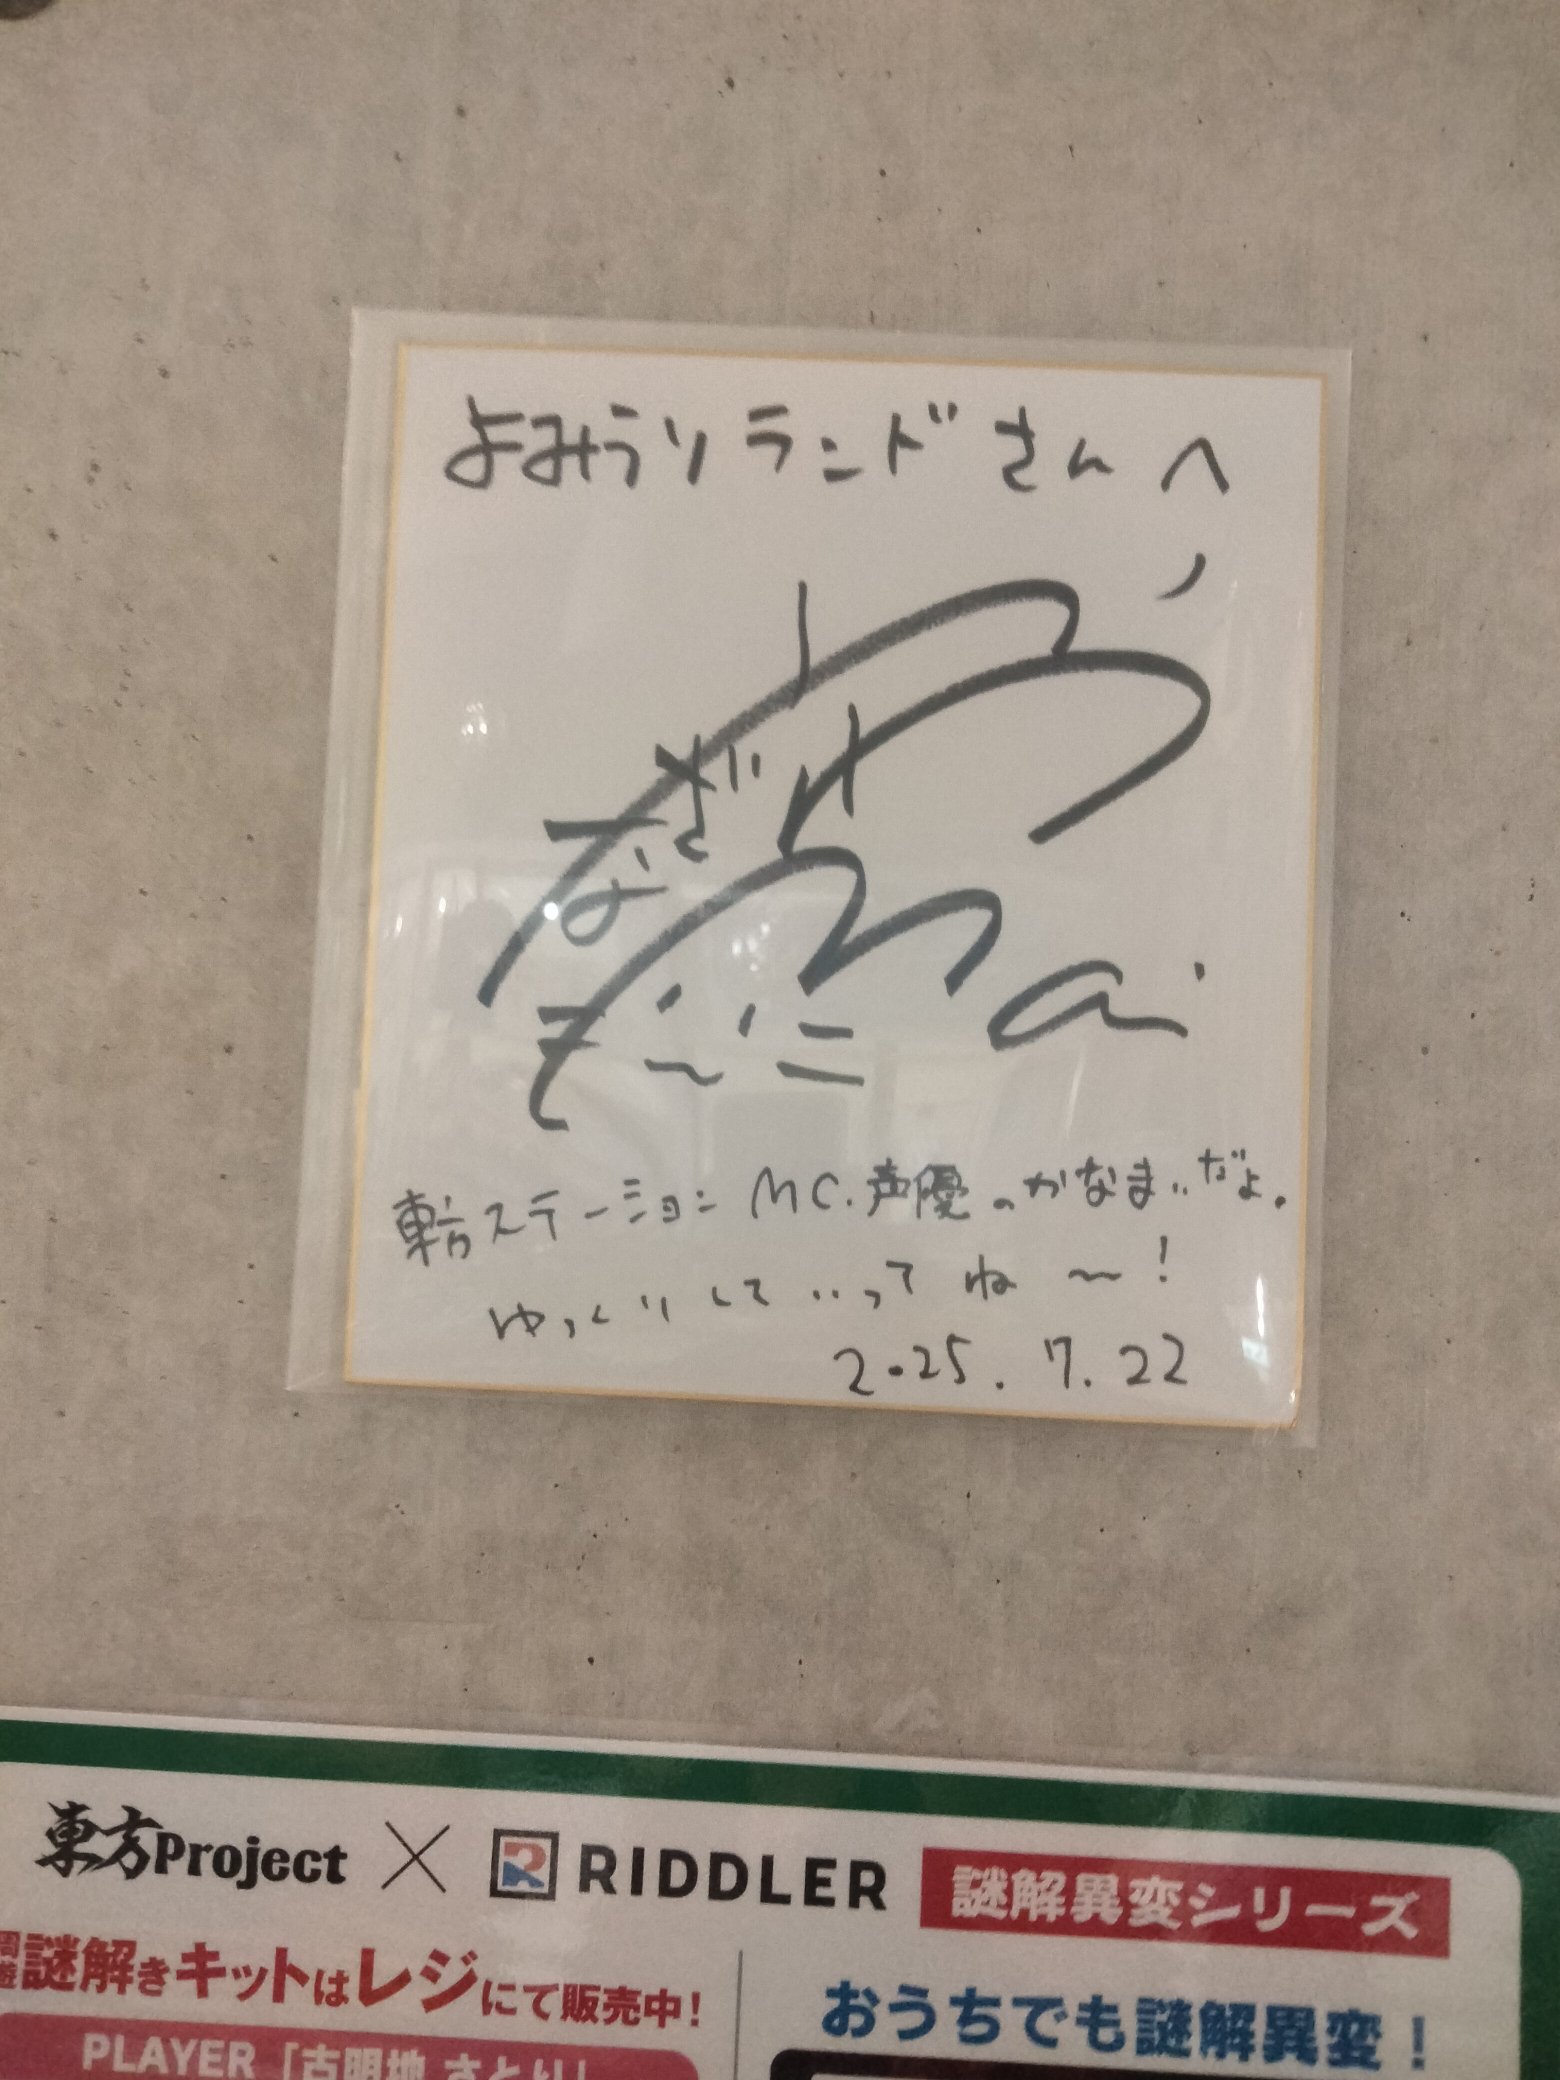 よみうりランドさんへ
なざけ
も
mai
東方ステーションMC.声優のかなまいだよ。
ゆっくりしていってね〜!
2025.7.22
東方Project × RIDDLER 謎解異変シリーズ
謎解きキットはレジにて販売中!
おうちでも謎解異変!
PLAYER「古明地さとり」